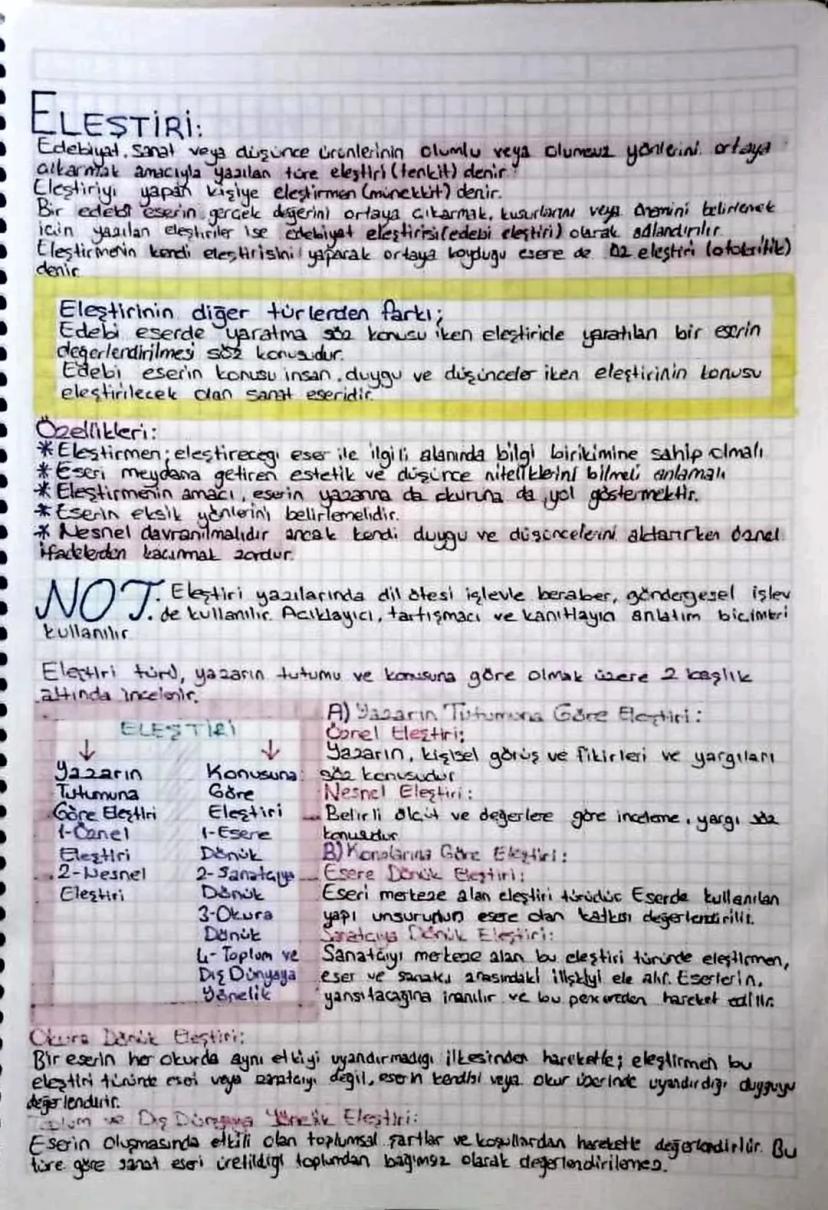 ELEŞTİRİ:
Edebiyat, sanat veya düşünce ürünlerinin olumlu veya olumsuz yönlerini ortaya
çıkarmak amacıyla yazılan türe eleştiri (tenkit) denir.
Eleştiriyi yapan kişiye eleştirmen (münekkit) denir.
Bir edebi eserin gerçek değerini ortaya çıkarmak, kusurlarını veya önemini belirlemek
için yazılan eleştiriler ise edebiyat eleştirisi (edebi eleştiri) olarak adlandırılır.
Eleştirmenin kendi eleştirisini yaparak ortaya koyduğu esere de öz eleştiri (otokritik)
denir
Eleştirinin diğer türlerden farkı;
Edebi eserde yaratma söz konusu iken eleştiride yaratılan bir eserin
değerlendirilmesi söz konusudur.
Edebi eserin konusu insan, duygu ve düşünceler iken eleştirinin konusu
eleştirilecek olan sanat eseridir.
Özellikleri:
* Eleştirmen; eleştireceği eser ile ilgili alanında bilgi birikimine sahip olmalı
* Eseri meydana getiren estetik ve düşünce niteliklerini bilmeli anlamalı
* Eleştirmenin amacı, eserin yazarına da okuruna da yol göstermektir.
* Eserin eksik yönlerini belirlemelidir.
* Nesnel davranılmalıdır ancak kendi duygu ve düşüncelerini aktarırken öznel
ifadelerden kaçınmak zordur.
NOT: Eleştiri yazılarında dil ötesi işlevle beraber, göndergesel işlev
de kullanılır. Açıklayıcı, tartışmacı ve kanıtlayıcı anlatım biçimleri
kullanılır
Eleştiri türü, yazarın tutumu ve konusuna göre olmak üzere 2 başlık
altında incelenir.
ELEŞTİRİ
Yazarın
Tutumuna
Göre Eleştiri
1-Öznel
Eleştiri
2-Nesnel
Eleştiri
Konusuna
Göre
Eleştiri
1-Esere
Dönük
2-Sanatçıya
Dönük
3-Okura
Dönük
4-Toplum ve
Dış Dünyaya
Yönelik
A) Yazarın Tutumuna Göre Eleştiri:
Öznel Eleştiri:
Yazarın, kişisel görüş ve fikirleri ve yargıları
söz konusudur
Nesnel Eleştiri:
Belirli ölçüt ve değerlere göre inceleme, yargı söz
konusudur
B) Konularına Göre Eleştiri:
Esere Dönük Eleştiri:
Eseri merkeze alan eleştiri türüdür. Eserde kullanılan
yapı unsurunun esere olan katkısı değerlendirilir.
Sanatçıya Dönük Eleştiri:
Sanatçıyı merkeze alan bu eleştiri türünde eleştirmen,
eser ve sanatçı arasındaki ilişkiyi ele alır. Eserlerin,
yansıtacağına inanılır ve bu hareket edilir.
Okura Dönük Eleştiri:
Bir eserin her okurda aynı etkiyi uyandırmadığı ilkesinden hareketle; eleştirmen bu
eleştiri türünde eseri veya sanatçıyı değil, eserin kendisi veya okur üzerinde uyandırdığı duyguyu
değerlendirir.
Toplum ve Dış Dünyaya Yönelik Eleştiri:
Eserin oluşmasında etkili olan toplumsal şartlar ve koşullardan hareketle değerlendirilir. Bu
türe göre sanat eseri üretildiği toplumdan bağımsız olarak değerlendirilemez.